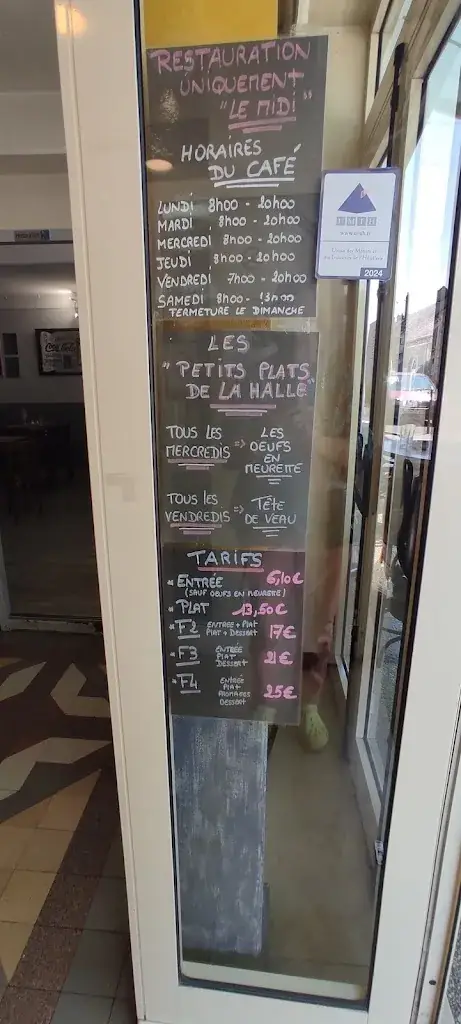 RESTAURATION
UNIQUEMENT
"LE MIDI"
HORAIRES
DU CAFÉ
LUNDI 8h00 - 20h00
MARDI 8h00 - 20h00
MERCREDI 8h00 - 20h00
JEUDI 8h00 - 20h00
VENDREDI 7h00 - 20h00
SAMEDI 8h00 - 13h00
FERMETURE LE DIMANCHE
LES
"PETITS PLATS
DE LA HALLE"
TOUS LES
MERCREDIS => LES
OEUFS
EN
MEURETTE
TOUS LES
VENDREDIS => TÊTE
DE VEAU
TARIFS
* ENTRÉE 6,10€
(SAUF OEUFS EN MEURETTE)
* PLAT 13,50€
* F2 ENTREE + PLAT
PLAT + DESSERT 17€
* F3 ENTRÉE
PLAT
DESSERT 21€
* F4 ENTRÉE
PLAT
FROMAGES
DESSERT 25€
UMIH
Union des Métiers et
des Industries de l'Hôtellerie
2024